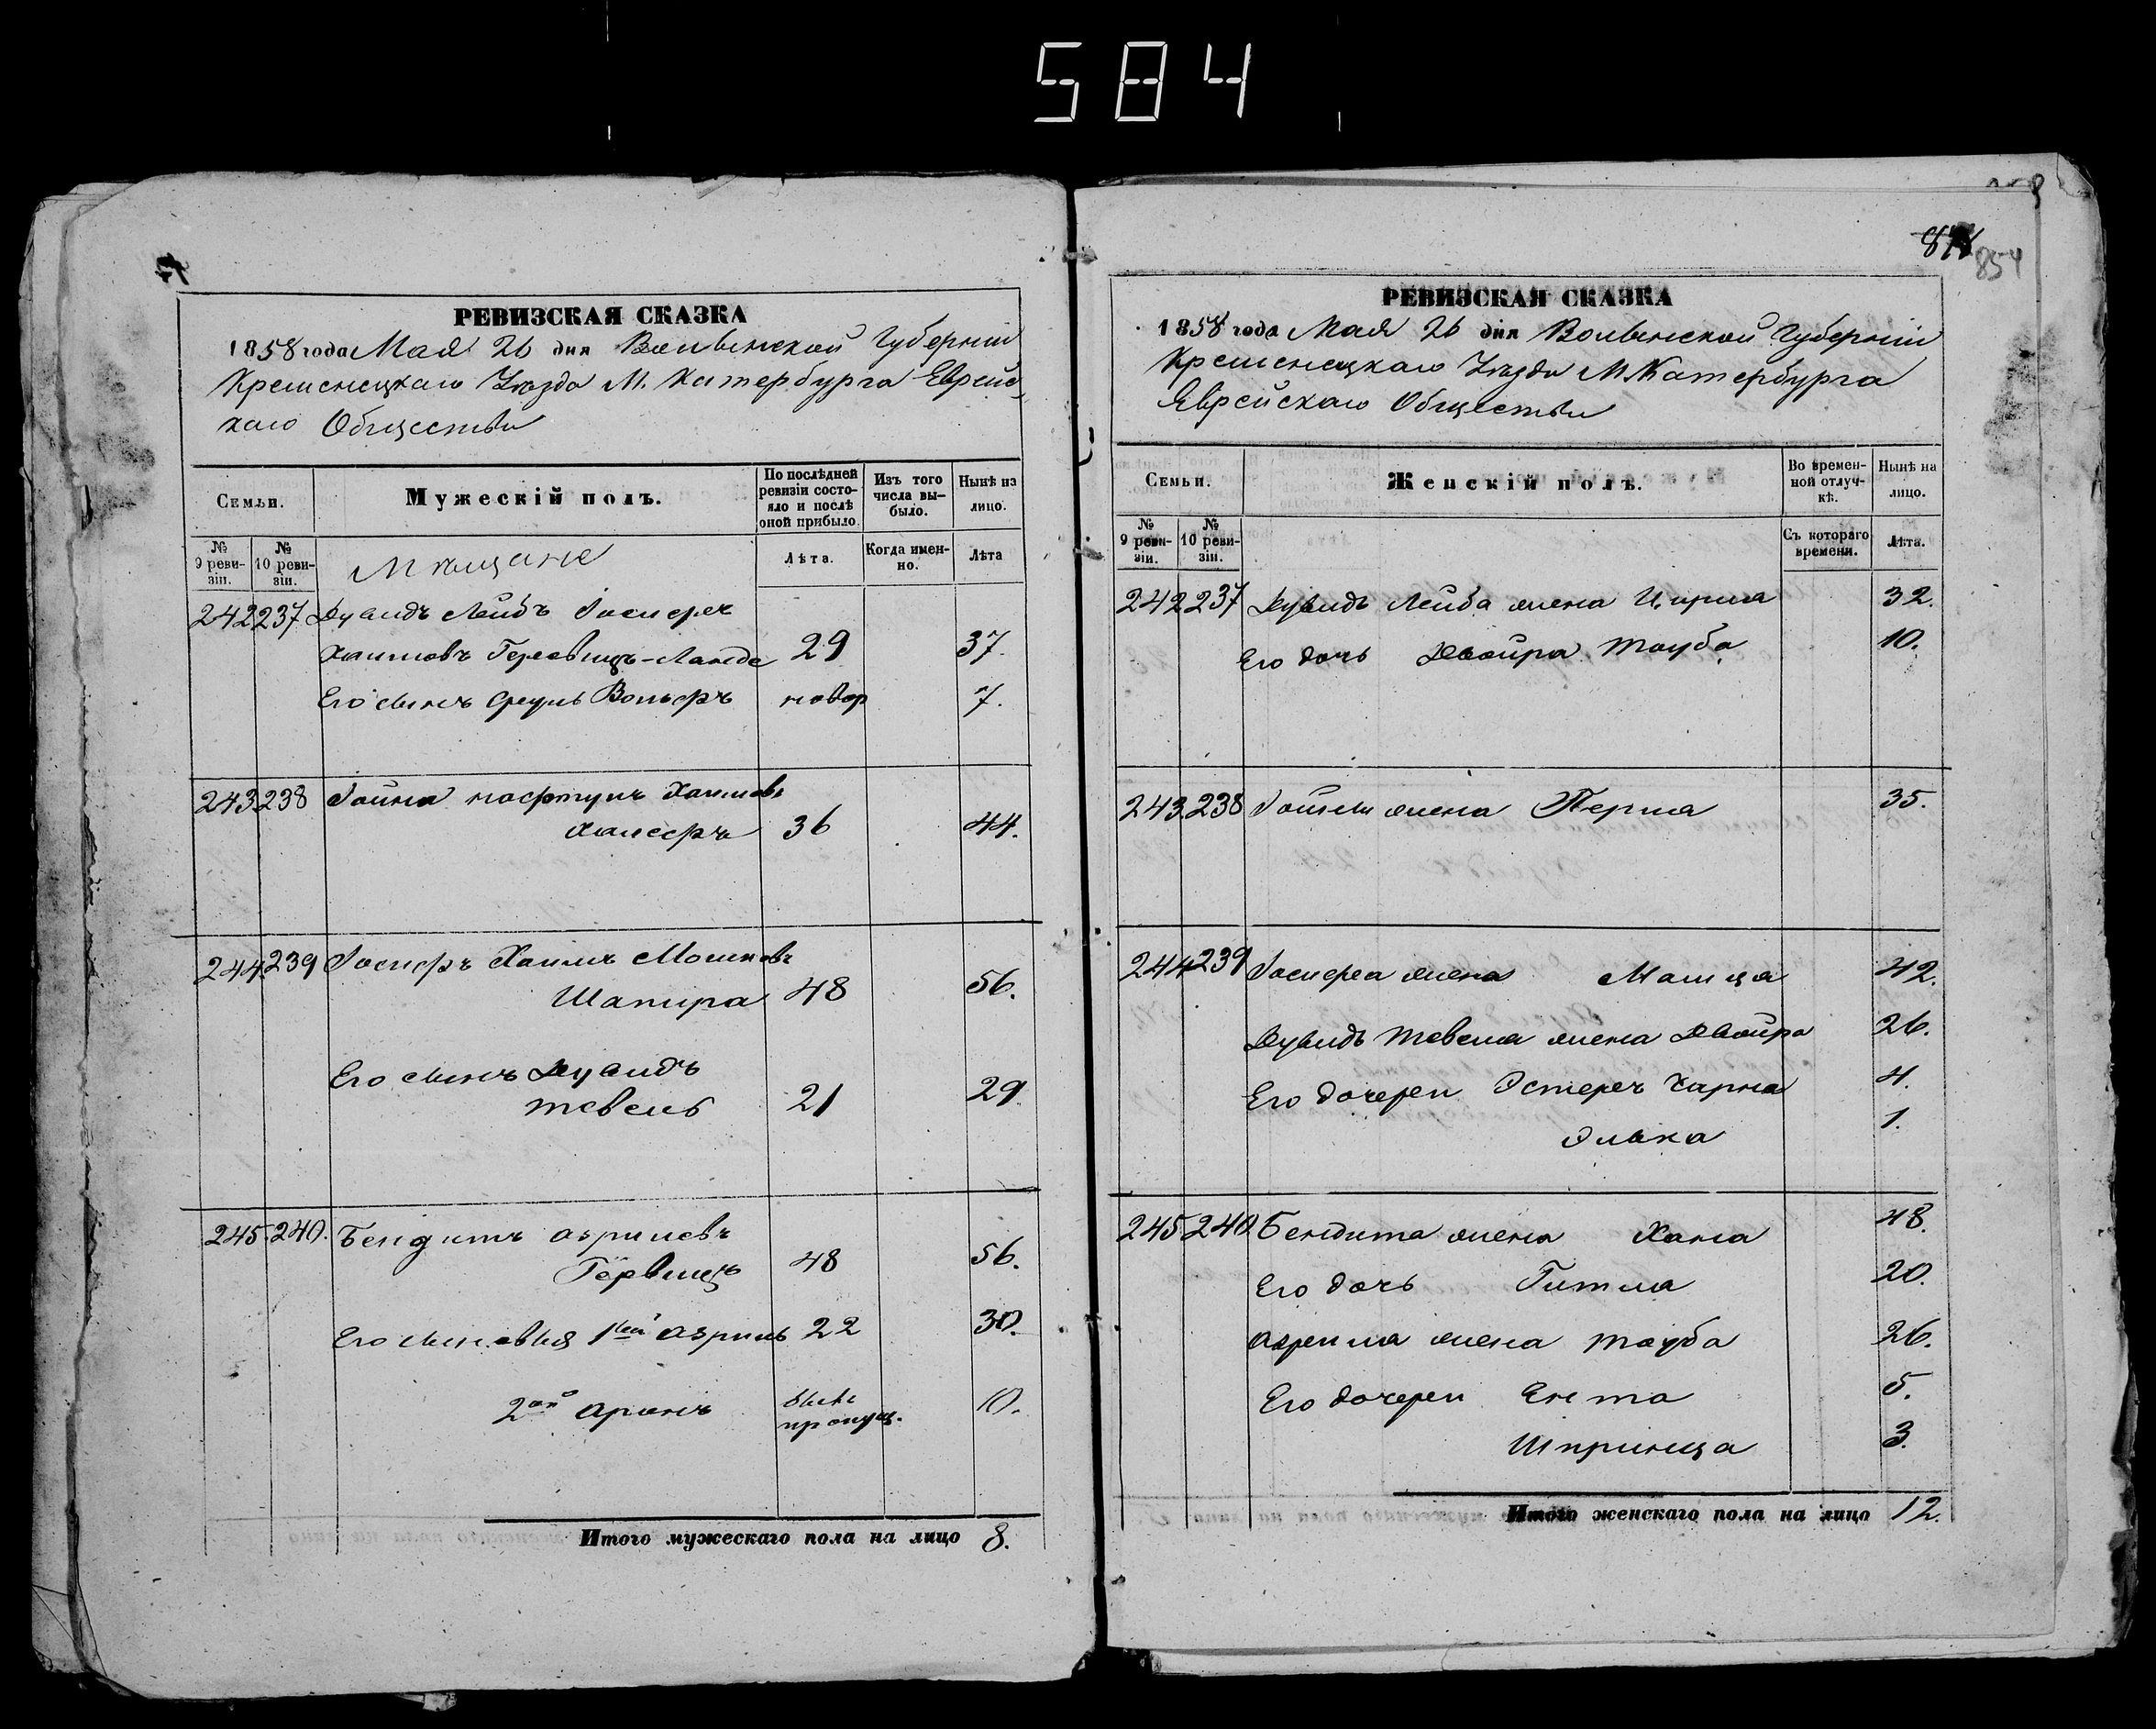 584
РЕВИЗСКАЯ СКАЗКА
1858 года Мая 26 дня Волынской Губернии
Кременецкаго Уѣзда М. Катербурга Еврейс-
каго Общества
Семьи.
Мужескій полъ.
По послѣдней ревизіи состояло и послѣ оной прибыло
Изъ того числа выбыло.
Нынѣ на лицо.
№ 9 ревизіи.
№ 10 ревизіи.
Мѣщане
Лѣта.
Когда именно.
Лѣта
242 237 Дувидъ Лейбъ Іосифъ
Хаимовъ 29 37.
Его сынъ Сруль Вольфъ новор 7.
243 238 Хаимовъ
36 44.
244 239 Іосифъ Хаимъ Мошковъ
Шапира 48 56.
Его сынъ Дувидъ
Тевель 21 29.
245. 240. Бендитъ Азрилевъ
Гервицъ 48 56.
Его сыновья 1ый Азриль 22 30.
2ой Аронъ былъ пропущ. 10.
Итого мужескаго пола на лицо 8.
854
РЕВИЗСКАЯ СКАЗКА
1858 года Мая 26 дня Волынской Губерніи
Кременецкаго Уѣзда М. Катербурга
Еврейскаго Общества
Семьи.
Женскій полъ.
Во временной отлучкѣ.
Нынѣ на лицо.
№ 9 ревизіи.
№ 10 ревизіи.
Съ котораго времени.
Лѣта.
242 237 Дувидъ Лейба жена 32.
Его дочь Двойра Тауба 10.
243 238 жена Перла 35.
244 239 Іосифа жена 42.
Дувидъ Тевеля жена Двойра 26.
Его дочери Эстеръ Чарна 4.
Элька 1.
245 240 Бендита жена Хана 48.
Его дочь Гитля 20.
Азриля жена Тауба 26.
Его дочери Ента 5.
Шпринца 3.
Итого женскаго пола на лицо 12.